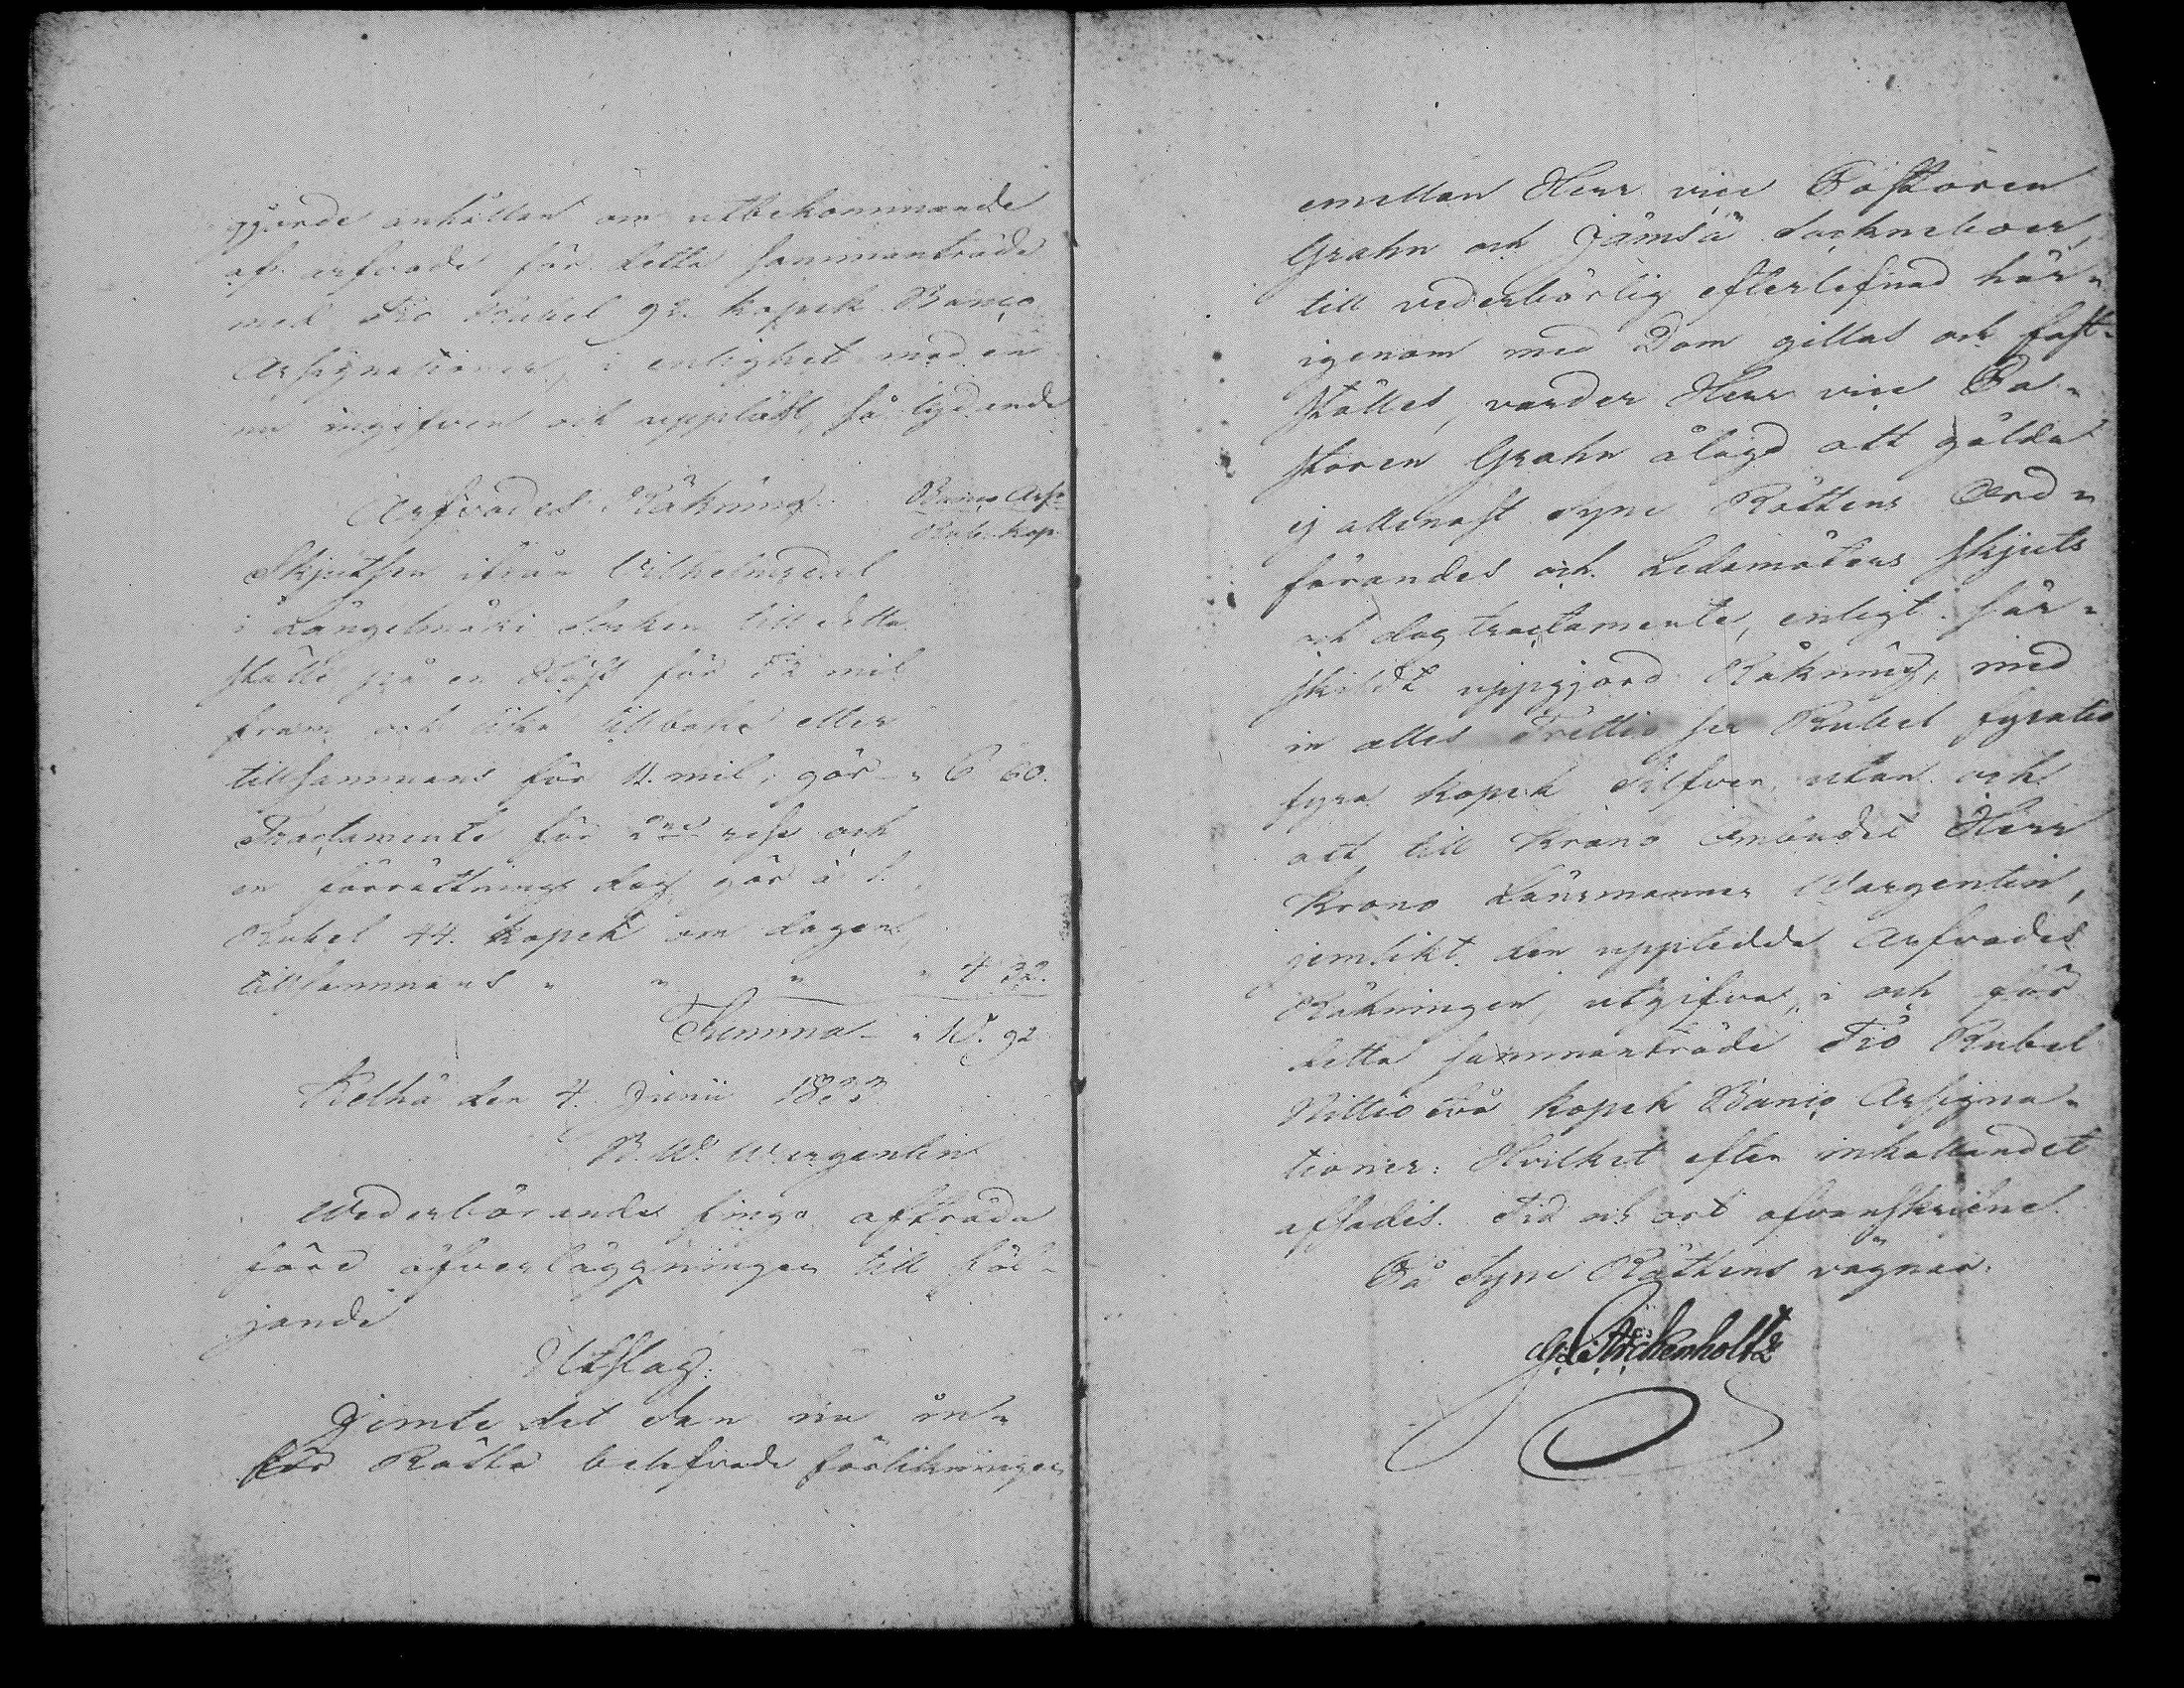 gjorde anhållan om utbekommande
af arfvode för detta sammanträde
med Tio Rubel 92. kopek Banco
Assignationer, i enlighet med en
nu ingifven och uppläst, så lydande
Arfvodes Räkning. Banco Ass:
Rub. kop.
Skjutsen ifrån Vilhelmsdal
i Längelmäki Socken till detta
ställe på en Häst för 5½ mil
fram och lika tillbaka eller
tillsammans för 11. mil, gör " 6 60.
Tractamente för 2ne resa och
en förrättnings dag gör à 1.
Rubel 44. kopek om dagen,
tillsammans " " " " 4 32.
Summa " 10. 92
Kelhä den 4. Junii 1833
B. W. Wargentin
Wederbörande fingo afträda
före öfverläggningen till föl-
jande
Utslag:
Jemte det den nu in-
för Rätta belefvade förlikningen
emellan Herr vice Pastoren
Grahn och Jämsä Sockneboer
till vederbörlig efterlefnad här-
igenom med Dom gillas och fast-
ställes, varder Herr vice Pa-
storen Grahn ålagd att gälda
ej allenast Syne Rättens Ord-
förandes och Ledamöters skjuts
och dag tractamente, enligt sär-
skildt uppgjord Räkning, med
in alles Trettio sex Rubel fyratio
fyra kopek Silfver, utan ock
att till Krono Ombudet Herr
Krono Länsmannen Wargentin,
jemlikt den uppledde Arfvodes
Räkningen, utgifva, i och för
detta sammanträde Tio Rubel
Nittio två kopek Banco Assigna-
tioner: Hvilket efter inkallandet
afsades. Tid och ort ofvanskrifne.
På Syne Rättens vägnar:
G: L: Stöckenholtz